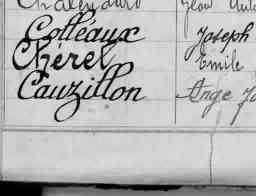 Colleaux Joseph
Chérel Emile
Cauzillon Ange